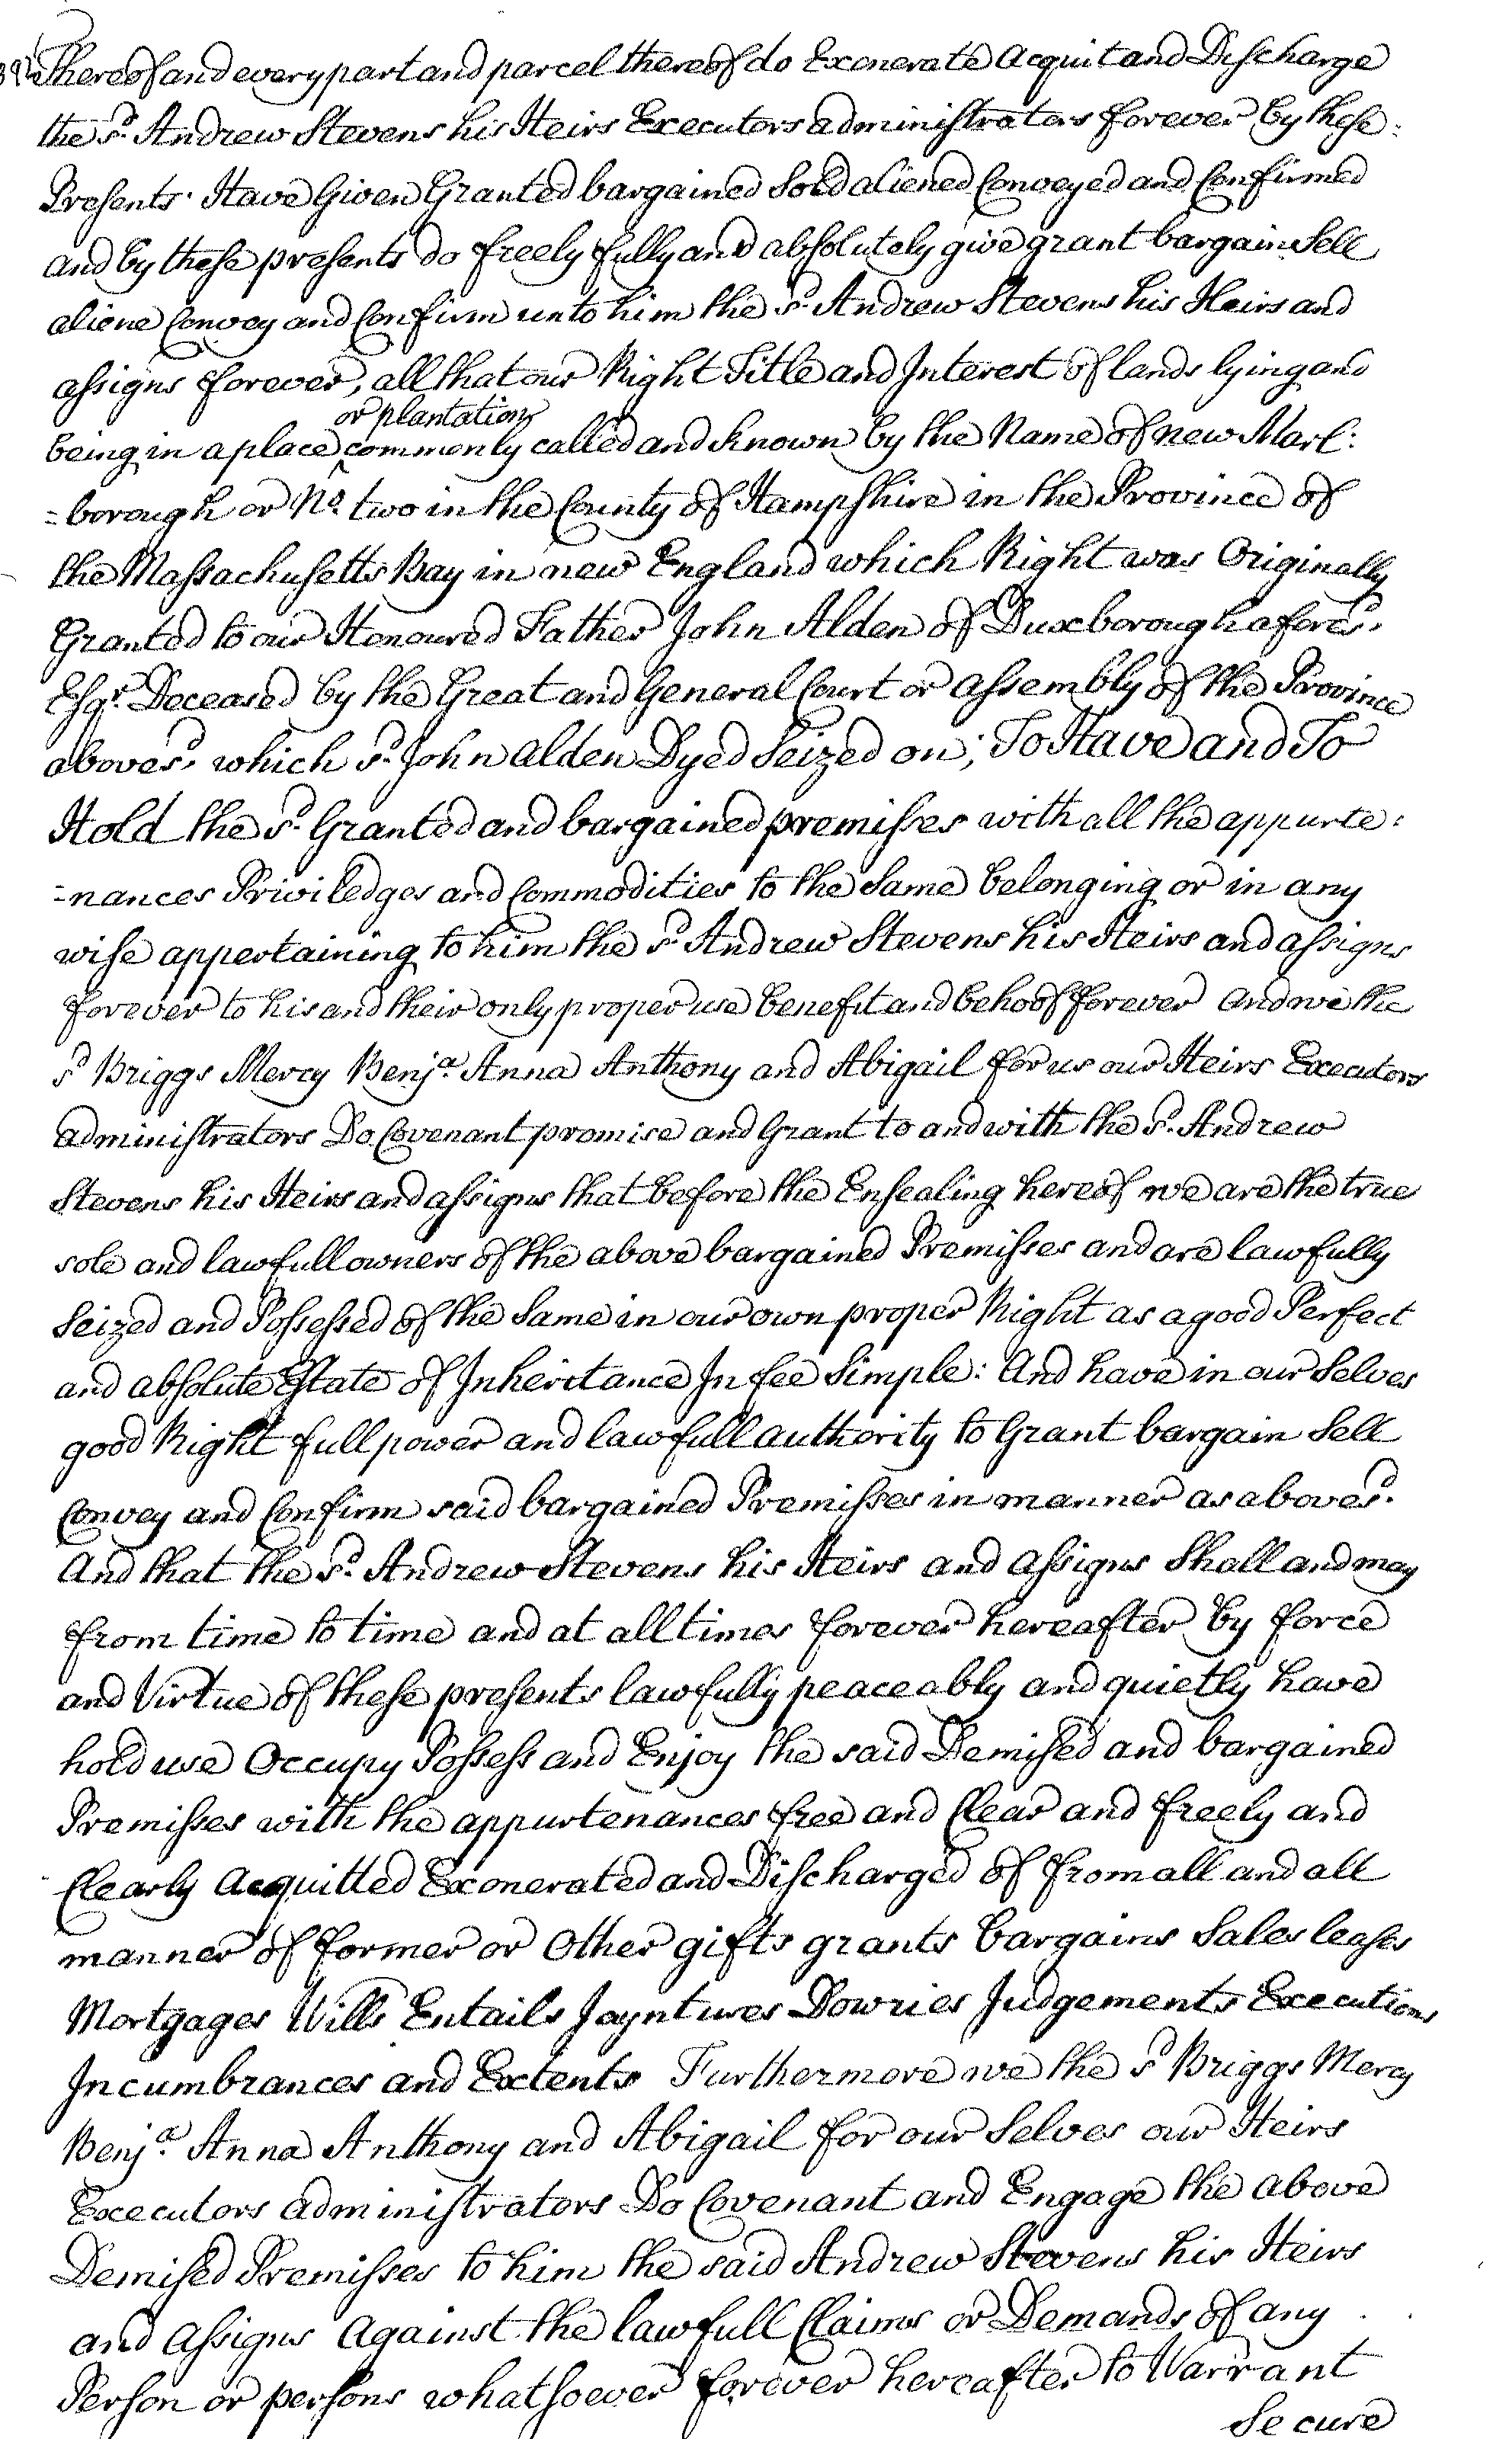 Thereof and every part and parcel thereof do Exonerate Acquit and Discharge
the sd. Andrew Stevens his Heirs Executors administrators forever by these
Presents. Have Given Granted bargained Sold aliened Conveyed and Confirmed
and by these presents do freely fully and absolutely give grant bargain Sell
aliene Convey and Confirm unto him the sd. Andrew Stevens his Heirs and
assigns forever, all that our Right Title and Interest of lands lying and
or plantation
being in a place ‸ commonly called and known by the Name of new Marl:
=borough or No. two in the County of Hampshire in the Province of
the Massachusetts Bay in new England which Right was Originally
Granted to our Honoured Father John Alden of Duxborough afores.d
Esqr. Deceased by the Great and General Court or assembly of the Province
aboves.d which sd. John Alden Dyed Seized on; To Have and To
Hold the sd. Granted and bargained premisses with all the appurte:
=nances Priviledges and Commodities to the Same belonging or in any
wise appertaining to him the sd. Andrew Stevens his Heirs and assigns
forever to his and their only proper use benefit and behoof forever And we the
sd Briggs Mercy Benja. Anna Anthony and Abigail for us our Heirs Executors
administrators Do Covenant promise and Grant to and with the sd. Andrew
Stevens his Heirs and assigns that before the Ensealing hereof we are the true
sole and lawfull owners of the above bargained Premisses and are lawfully
Seized and Possessed of the Same in our own proper Right as a good Perfect
and absolute Estate of Inheritance In fee Simple: And have in our Selves
good Right full power and lawfull authority to Grant bargain Sell
Convey and Confirm said bargained Premisses in manner as aboves.d
And that the sd. Andrew Stevens his Heirs and assigns Shall and may
from time to time and at all times forever hereafter by force
and Virtue of these presents lawfully peaceably and quietly have
hold use Occupy Possess and Enjoy the said Demised and bargained
Premisses with the appurtenances free and Clear and freely and
Clearly Acquitted Exonerated and Discharged of from all and all
manner of former or Other gifts grants bargains Sales leases
Mortgages Wills Entails Joyntures Dowries Judgements Executions
Incumbrances and Extents Furthermore we the sd Briggs Mercy
Benja. Anna Anthony and Abigail for our Selves our Heirs
Executors administrators Do Covenant and Engage the above
Demised Premisses to him the said Andrew Stevens his Heirs
and Assigns Against the lawfull Claims or Demands of any
Person or persons whatsoever forever hereafter to Warrant
Secure